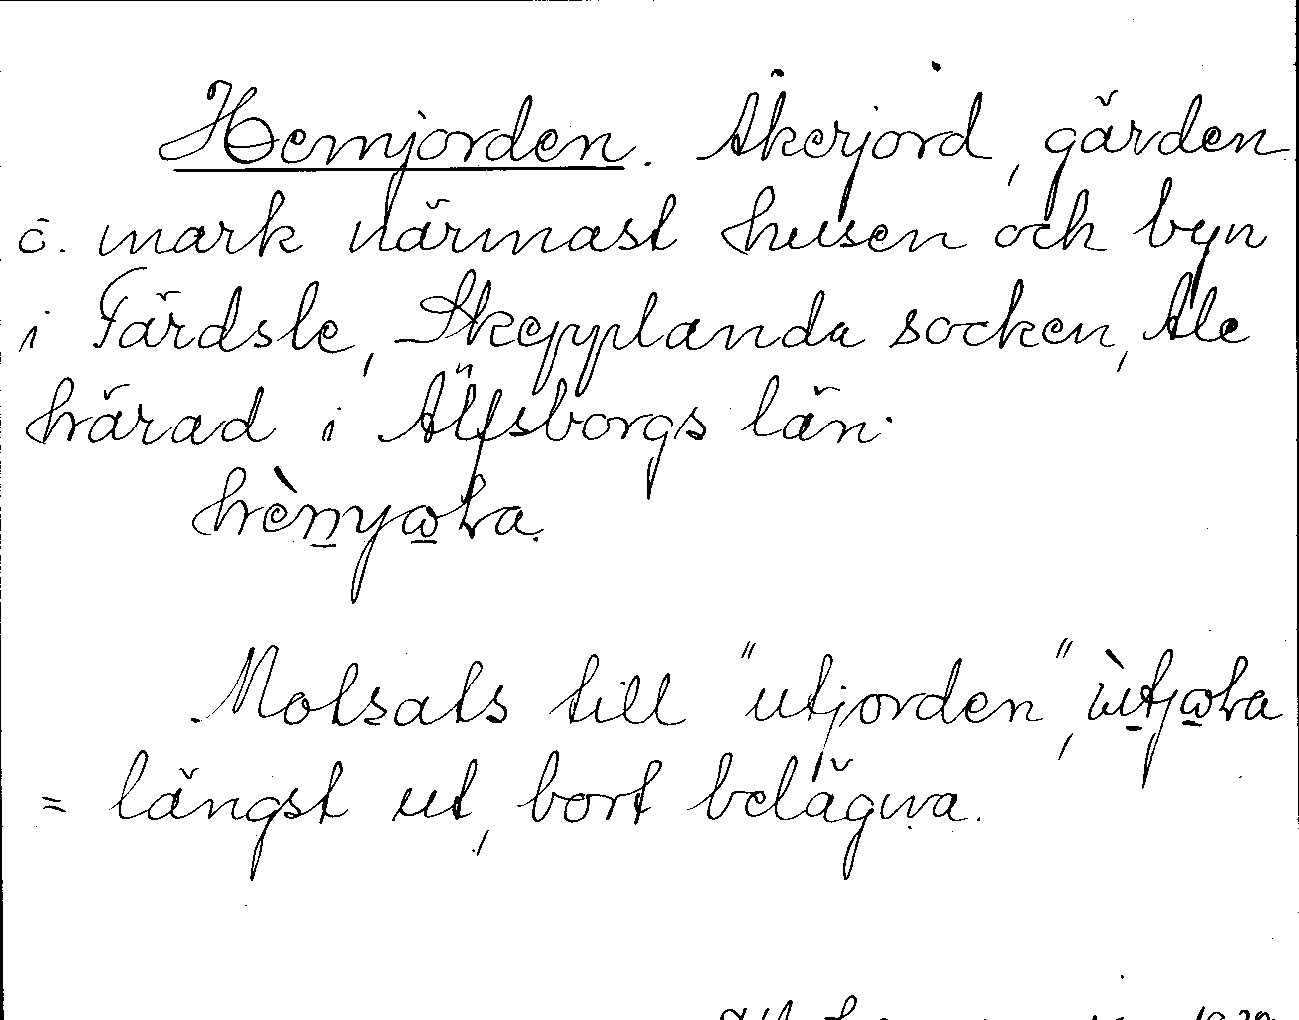 Hemjorden. Åkerjord, gärden
o. mark närmast husen och byn
i Färdsle, Skepplanda socken, Ale
härad i Älfsborgs län.
Motsats till "utjorden",
= längst ut, bort belägna.